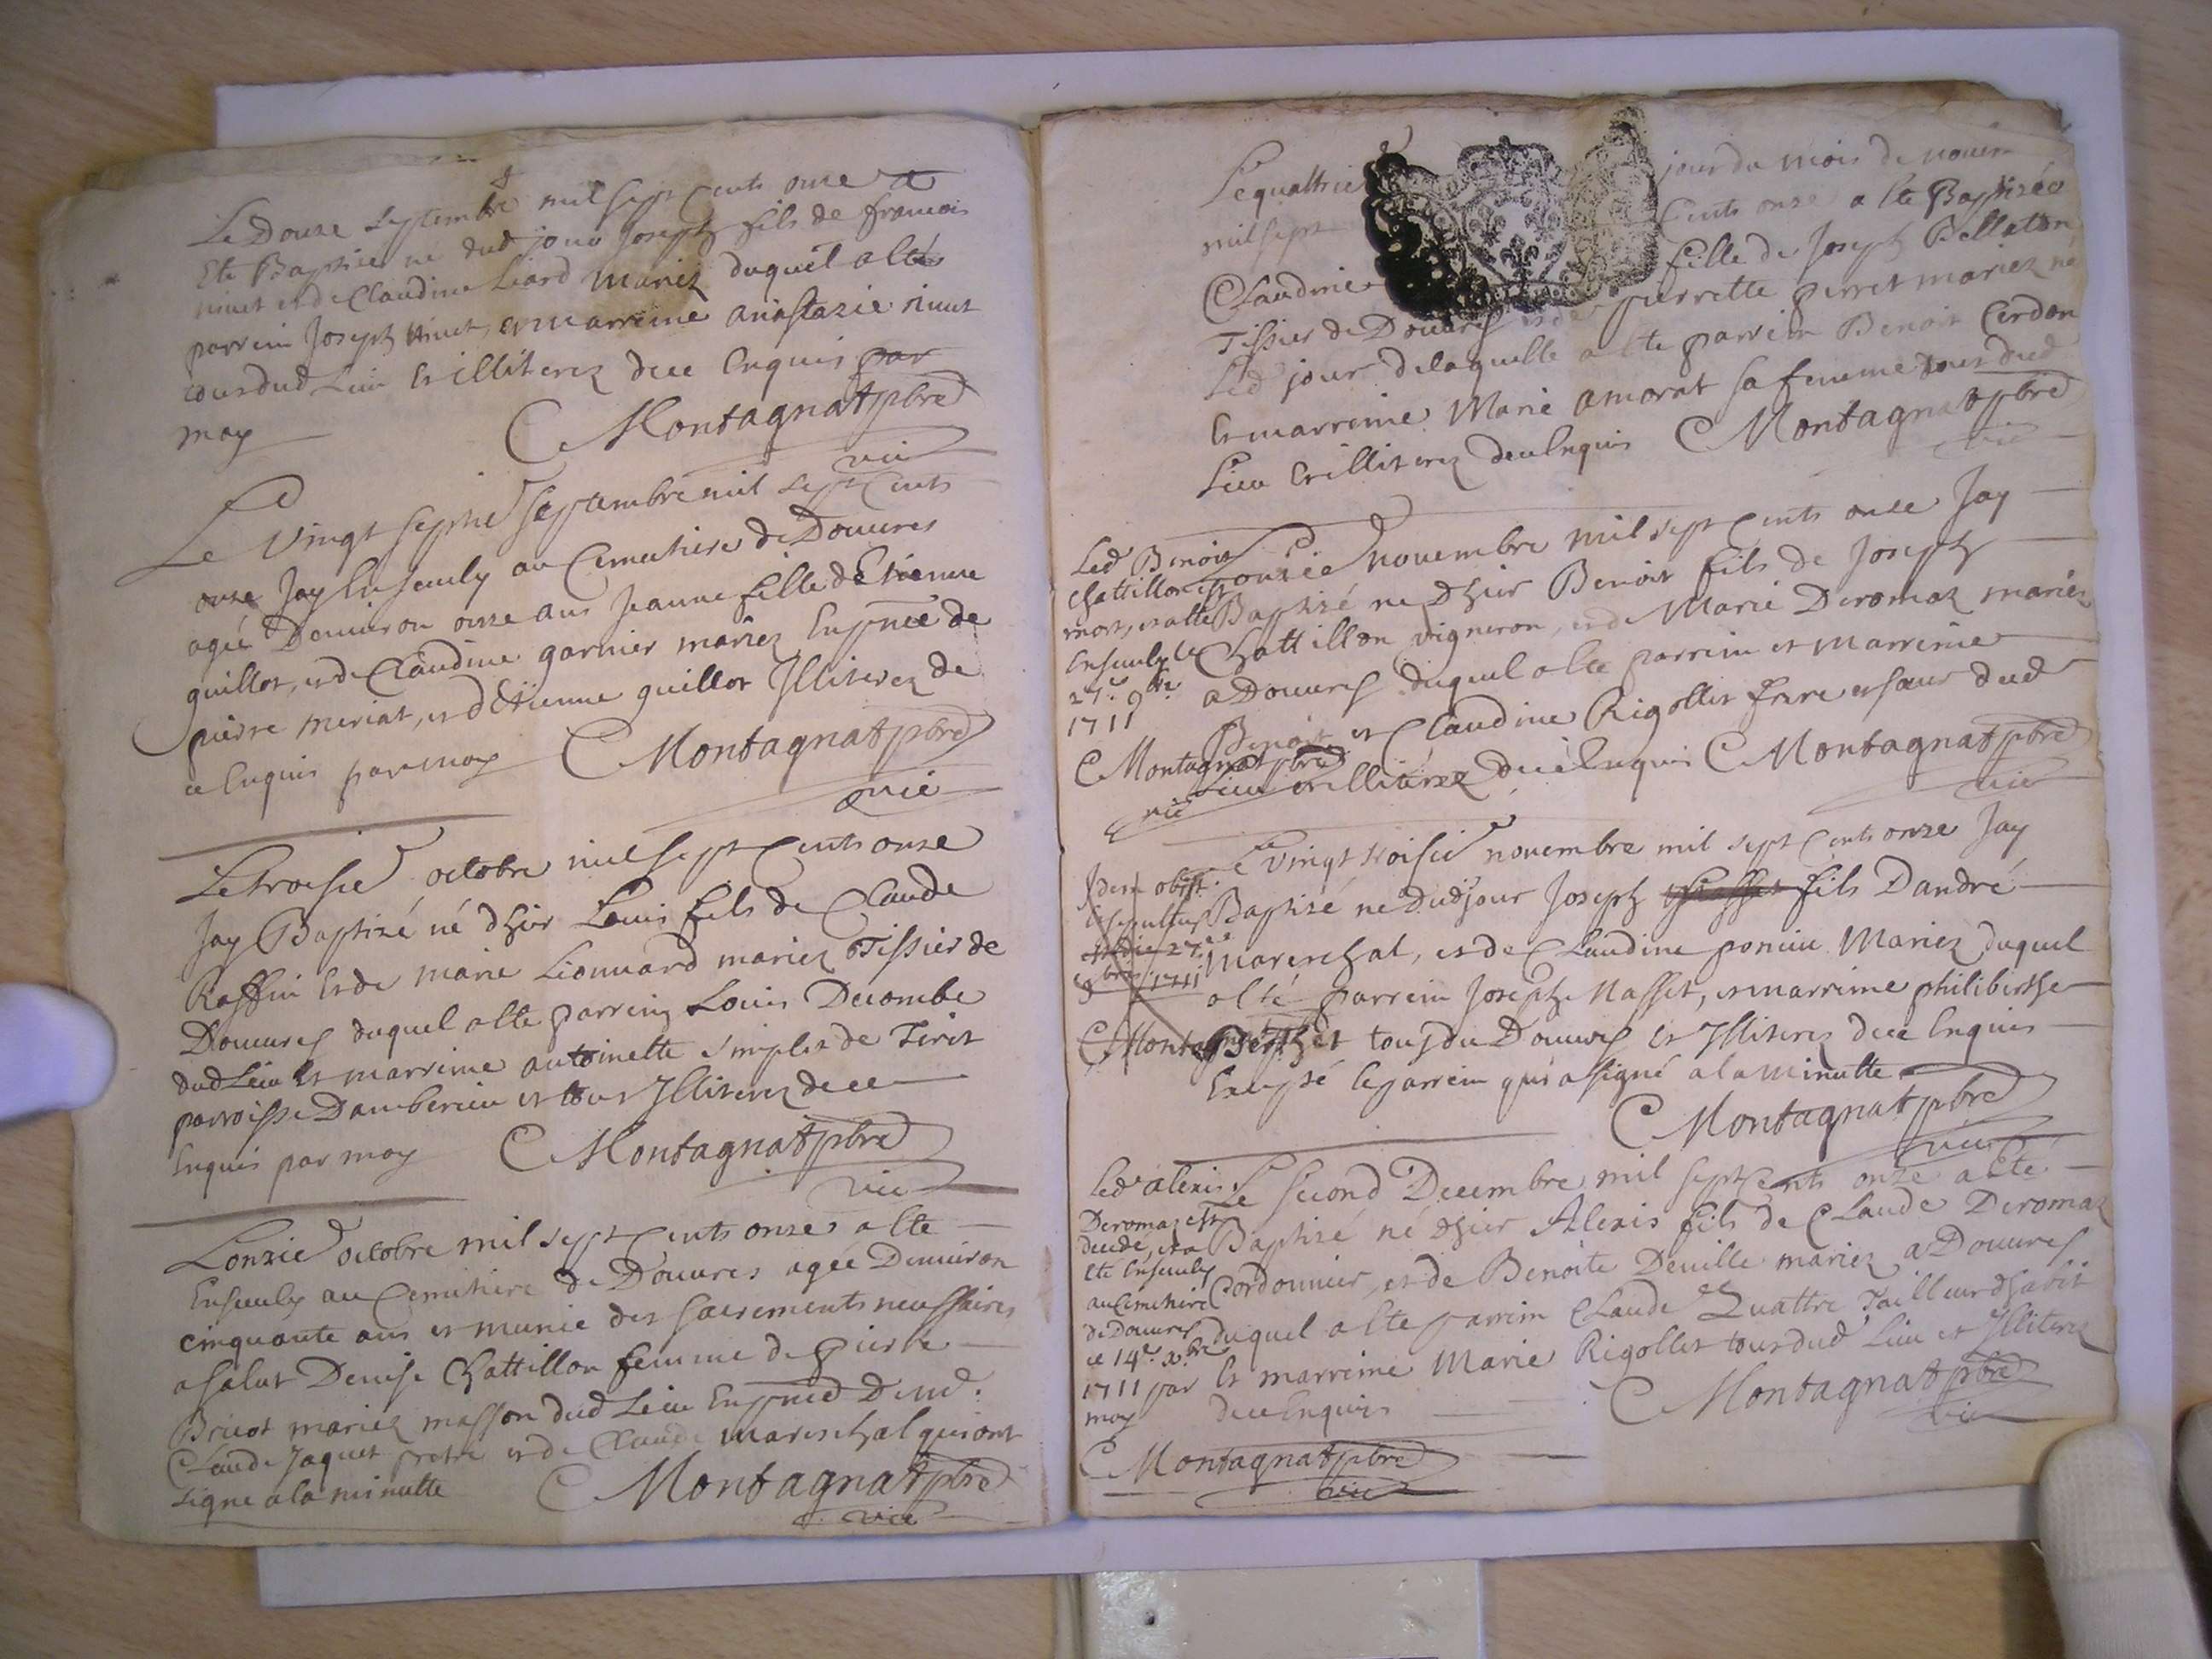 Le Douze septembre mil sept cents onze a
Ete Baptisé né dud jour Joseph fils de francois
niuet et de Claudine Liard mariez duquel a Eté
parrein Joseph niuet, et marreine anastazie niuet
tous dud Lieu Et illiterez de ce Enquis par
moy
C Montagnat pbre
vic
Le Vingt septie septembre mil sept Cents
onze Jay Enseuely au Cemetiere de Douures
agée Denuiron onze ans Jeanne fille de Etienne
guillot, et de Claudine garnier mariez En pnce de
pierre meriat, et d'Etienne guillot Illiterez de
ce Enquis par moy C Montagnat pbre
vic
Le troisie octobre mil sept Cents onze
Jay Baptisé né dhier Louis fils de Claude
Raffin Et de marie Lionnard mariez Tissier de
Douures duquel a Ete parrein Louis Decombe
dud Lieu Et marreine antoinette simplet de Tiret
parroisse Damberieu et tous Illiterez de ce
Enquis par moy C Montagnat pbre
vic
Lonzie octobre mil sept Cents onze a Ete
Enseuely au Cemetiere de Douures agée Denuiron
cinquante ans et munie des sacrements necessaires
a salut Denise Chattillon femme de pierre
Bricot mariez masson dud Lieu En pnce De md.
Claude Jaquet pretre et de Claude mareschal qui ont
signe a la minutte C Montagnat pbre
vic
Le quattrie jour du mois de nouem
mil sept Cents onze a Ete Baptisée
Claudine fille de Joseph Belleton
Tissier de Douures et de pierrette perret mariez né
Led jour de laquelle a Ete parrein Benoit Cerdon
Et marreine Marie amorat sa femme tous dud
Lieu Et illiterez de ce Enquis C Montagnat pbre
vic
Led Benoit
Chattillon est
mort, et a Ete
Enseuely le
27e 9bre
1711
C Montagnat pbre
vic
Lonzie nouembre mil sept Cents onze Jay
Baptisé né Dhier Benoit fils de Joseph
Chattillon vigneron, et de Marie Deromaz mariez
a Douures duquel a Ete parrein et marreine
Benoit et Claudine Rigollet frere et saeur dud
Lieu et illiterez de ce Enquis C Montagnat pbre
vic
Idem obijt
et sepultus
est die 27e
9bris 1711
C Montagnat
Le vingt troisie nouembre mil sept Cents onze Jay
Baptisé né Dudjour Joseph fils Dandré
Mareschal, et de Claudine poncin Mariez duquel
a Eté parrein Joseph Nasset, et marreine philiberthe
tous du Douures Et Illiterez de ce Enquis
Excepté le parrein qui a signé a la minutte
C Montagnat pbre
vic
Led alexis
Deromaz est
decedé, et a
Ete Enseuely
au Cemetiere
de Douures
ce 14e xbre
1711 par
moy
C Montagnat pbre
vic
Le second Decembre mil sept Cents onze a Eté
Baptisé né dhier Alexis fils de Claude Deromaz
Cordonnier, et de Benoite Deuille mariez a Douures
duquel a Ete parrein Claude Quattre Tailleur dhabit
Et marreine Marie Rigollet tous dud Lieu et Illiterez
de ce Enquis C Montagnat pbre
vic